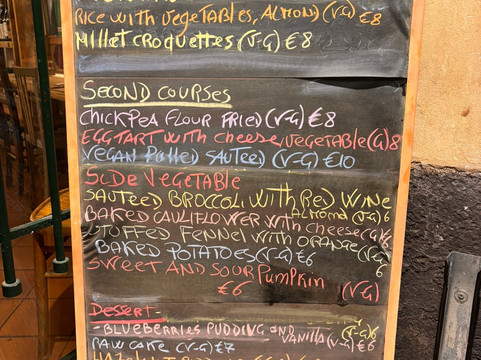 RICE WITH VEGETABLES, ALMOND (V-G) €8
MILLET CROQUETTES (V-G) €8
SECOND COURSES
CHICKPEA FLOUR FRIED (V-G) €8
EGG TART WITH CHEESE, VEGETABLE (G) 8
VEGAN PULLED SAUTEED (V-G) €10
SIDE VEGETABLE
SAUTEED BROCCOLI WITH RED WINE
ALMOND (V-G) 6
BAKED CAULIFLOWER WITH CHEESE (G) €6
STUFFED FENNEL WITH ORANGE (V-G)
6
BAKED POTATOES (V-G) €6
SWEET AND SOUR PUMPKIN
€6 (V-G)
DESSERT-
-BLUEBERRIES PUDDING AND VANILLA (V-G) 6
RAW CAKE (V-G) €7